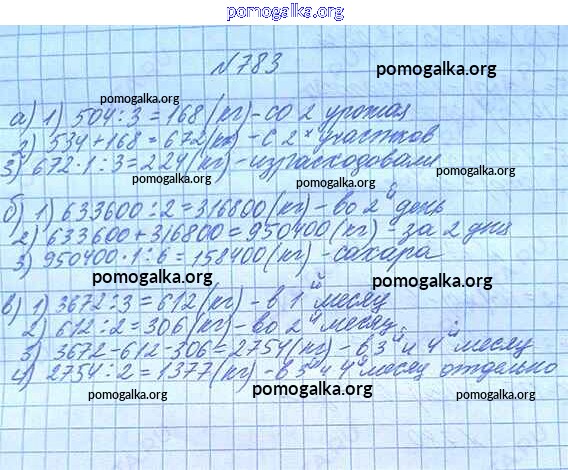 pomogalka.org
№783
pomogalka.org
pomogalka.org
а) 1) 504:3=168(кг)-со 2 урожая
2) 534+168=672(кг)-с 2х участков
pomogalka.org
3) 672·1:3=224(кг)-израсходовали
pomogalka.org
б) 1) 633600:2=316800(кг)-во 2й день
pomogalka.org
2) 633600+316800=950400(кг)-за 2 дня
3) 950400·1:6=158400(кг)-сахара
pomogalka.org
pomogalka.org
в) 1) 3672:3=612(кг)-в 1й месяц
2) 612:2=306(кг)-во 2й месяц
pomogalka.org
3) 3672-612-306=2754(кг)-в 3й и 4й месяц
4) 2754:2=1377(кг)-в 3й и 4й месяц отдельно
pomogalka.org
pomogalka.org
pomogalka.org